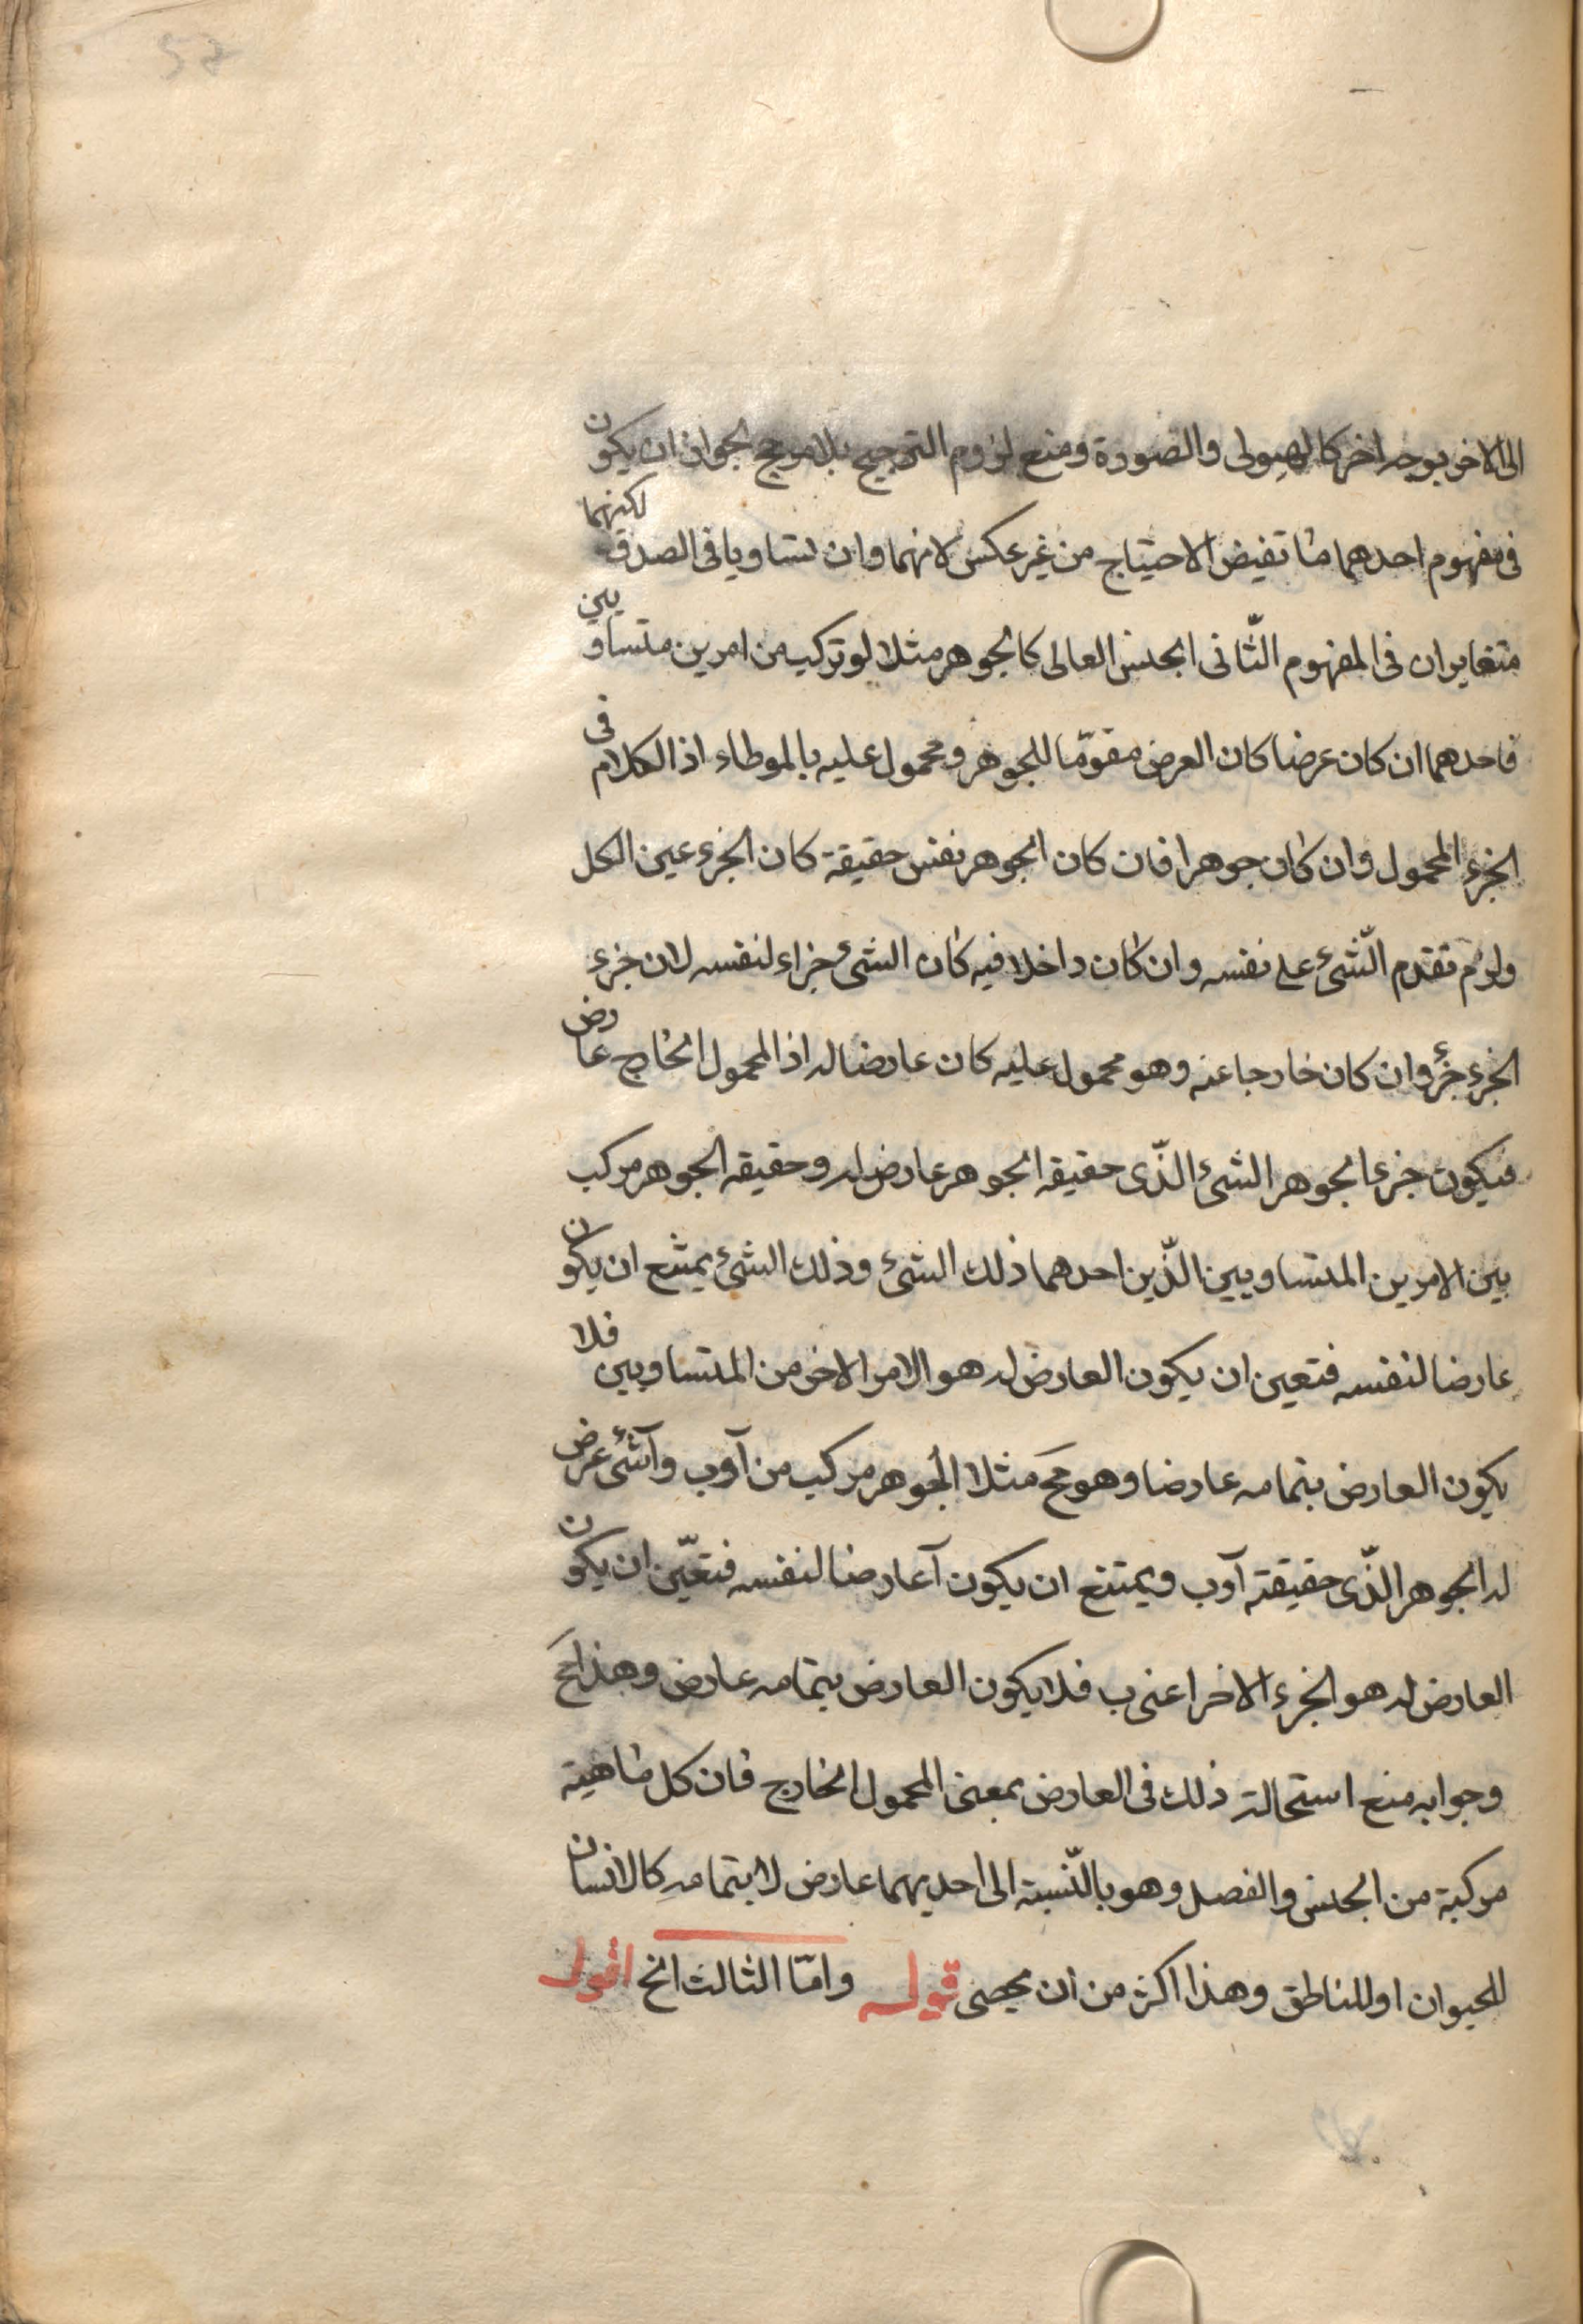 الى الاخر بوجه اخر كالهيولى والصورة ومنع لزوم الترجيح بلا مرجح لجواز ان يكون
فى مفهوم احدهما ما تفيض الاحتياج من غير عكس لانهما وان تساويا فى الصدق لكنهما
متغايران فى المفهوم الثّانى الجنس العالى كالجوهر مثلا لو تركب من امرين متساويين
فاحدهما ان كان عرضا كان العرض مقوّما للجوهر ومحمول عليه بالموطاء اذ الكلام فى
الجزء المحمول وان كان جوهرا فان كان الجوهر نفس حقيقة كان الجزء عين الكل
ولزم تقدم الشّئ على نفسه وان كان داخلا فيه كان الشئ جزاء لنفسه لان جزء
الجزء جزؤ وان كان خارجا عنه وهو محمول عليه كان عارضا له اذ المحمول الخارج عارض
فيكون جزء الجوهر الشئ الذّى حقيقه الجوهر عارض له وحقيقه الجوهر مركب
بين الامرين المتساويين الذّين احدهما ذلك الشئ وذلك الشئ يمتنع ان يكون
عارضا لنفسه فتعين ان يكون العارض له هو الامر الاخر من المتساويين فلا
يكون العارض بتمامه عارضا وهو مح مثلا الجوهر مركب من آ وب وآ شئ عرض
له الجوهر الذّى حقيقته آ وب ويمتنع ان يكون آ عارضا لنفسه فتعيّن ان يكون
العارض له هو الجزء الاخر اعنى ب فلا يكون العارض بتمامه عارض وهذا مح
وجوابه منع استحالة ذلك فى العارض بمعنى المحمول الخارج فان كل ماهية
مركبة من الجنس والفصل وهو بالنّسبة الى احديهما عارض لا بتمامه كالانسان
للحيوان او للناطق وهذا اكثر من ان يحصى قوله وامّا الثالث الخ اقول